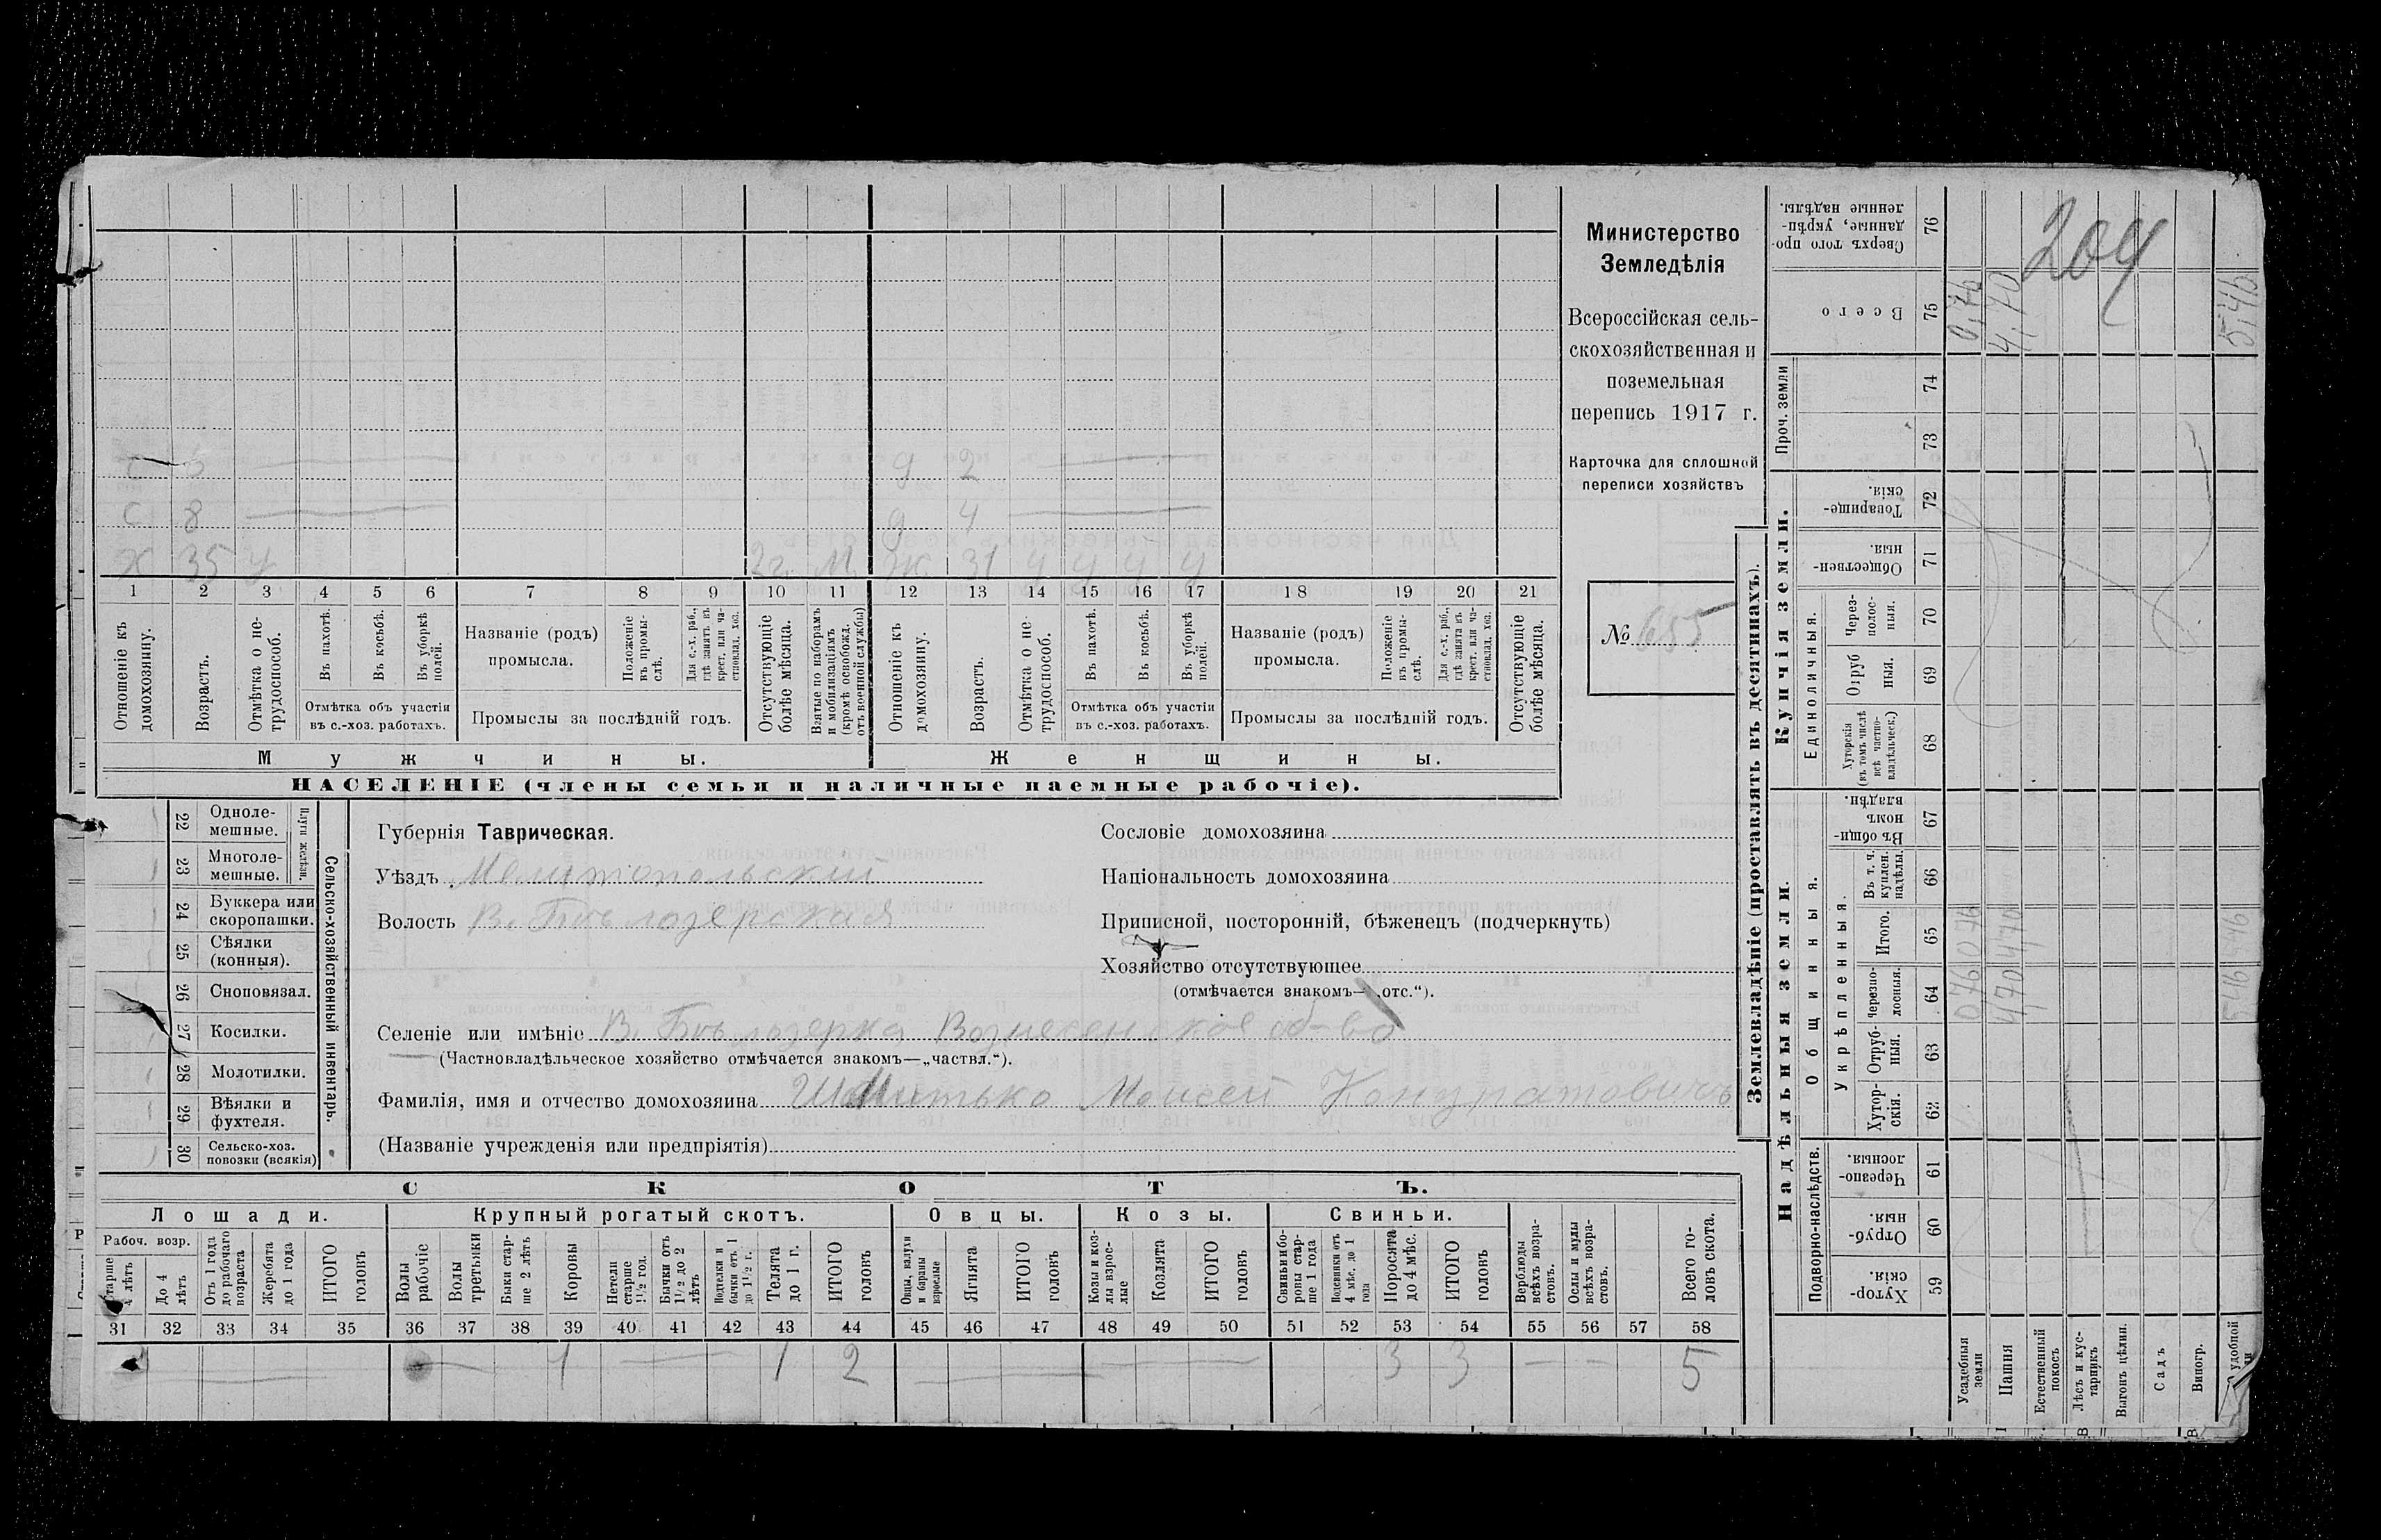 с 6 д 2
с 8 д 4
Х 35 ч 2 г. М. Ж. 31 ч ч ч ч
1 2 3 4 5 6 7 8 9 10 11 12 13 14 15 16 17 18 19 20 21
Отношеніе къ домохозяину.
Возрастъ.
Отмѣтка о не-трудоспособ.
Въ пахотѣ.
Въ косьбѣ.
Въ уборкѣ полей.
Отмѣтка объ участіи
въ с.-хоз. работахъ.
Названіе (родъ)
промысла.
Положеніе въ промы-слѣ.
Для с.-х. раб., гдѣ занятъ въ крест. или ча-стновлад. хоз.
Промыслы за послѣдній годъ.
Отсутствующіе болѣе мѣсяца.
Взятые по наборамъ и мобилизаціямъ (кромѣ освобожд. отъ военной службы)
Отношеніе къ домохозяину.
Возрастъ.
Отмѣтка о не-трудоспособ.
Въ пахотѣ.
Въ косьбѣ.
Въ уборкѣ полей.
Отмѣтка объ участіи
въ с.-хоз. работахъ.
Названіе (родъ)
промысла.
Положеніе въ промы-слѣ.
Для с.-х. раб., гдѣ занята въ крест. или ча-стновлад. хоз.
Промыслы за послѣдній годъ.
Отсутствующіе болѣе мѣсяца.
Мужчины.
Женщины.
НАСЕЛЕНІЕ (члены семьи и наличные наемные рабочіе).
Министерство
Земледѣлія
Всероссійская сель-
скохозяйственная и
поземельная
перепись 1917 г.
Карточка для сплошной
переписи хозяйствъ
№ 655
22 Одноле-
мешные.
23 Многоле-
мешные.
Плуги желѣзн.
24 Буккера или
скоропашки.
25 Сѣялки
(конныя).
26 Сноповязал.
27 Косилки.
28 Молотилки.
29 Вѣялки и
фухтеля.
30 Сельско-хоз.
повозки (всякія)
Сельско-хозяйственный инвентарь.
Губернія Таврическая.
Уѣздъ Мелитопольский
Волость В. Бѣлозерская
Селеніе или имѣніе В. Бѣлозерка Вознесенское об-во
(Частновладѣльческое хозяйство отмѣчается знакомъ—„частвл.“).
Фамилія, имя и отчество домохозяина Шамитько Моисей Кондратовичъ
(Названіе учрежденія или предпріятія)
Сословіе домохозяина
Національность домохозяина
Приписной, посторонній, бѣженецъ (подчеркнуть)
Хозяйство отсутствующее
(отмѣчается знакомъ—„отс.“).
СКОТЪ.
Лошади.
Крупный рогатый скотъ.
Овцы.
Козы.
Свиньи.
Рабоч. возр.
Старше 4 лѣтъ
До 4 лѣтъ
Отъ 1 года до рабочаго возраста
Жеребята до 1 года
ИТОГО головъ
Волы рабочіе
Волы третьяки
Быки стар-ше 2 лѣтъ
Коровы
Нетели старше 1½ год.
Бычки отъ 1½ до 2 лѣтъ
Подтелки и бычки отъ 1 до 1½ г.
Телята до 1 г.
ИТОГО головъ
Овцы, валухи и бараны взрослые
Ягнята
ИТОГО головъ
Козы и коз-лы взрос-лые
Козлята
ИТОГО головъ
Свиньи и бо-ровы стар-ше 1 года
Подсвинки отъ 4 мѣс. до 1 года
Поросята до 4 мѣс.
ИТОГО головъ
Верблюды всѣхъ возра-стовъ.
Ослы и мулы всѣхъ возра-стовъ.
Всего го-ловъ скота.
31 32 33 34 35 36 37 38 39 40 41 42 43 44 45 46 47 48 49 50 51 52 53 54 55 56 57 58
1 1 2 3 3 5
Землевладѣніе (проставлять въ десятинахъ).
Купчія земли.
Надѣльныя земли.
Проч. земли
Единоличныя.
Общинныя.
Укрѣпленныя.
Подворно-наслѣдств.
Сверхъ того про-данные, укрѣп-ленные надѣлы. 76
Всего 75
74
73
Товарище-скія. 72
Обществен-ныя. 71
Через-полос-ныя. 70
Отруб ныя. 69
Хуторскія (въ томъ числѣ всѣ частно-владѣльческ.) 68
Въ общи-номъ владѣн. 67
Въ т. ч. куплен. надѣлы. 66
Итого. 65
Черезпо-лосныя. 64
Отруб-ныя. 63
Хутор-скія. 62
Черезпо-лосныя. 61
Отруб-ныя. 60
Хутор-скія. 59
Усадебныя земли
Пашня
Естественный покосъ
Лѣсъ и кус-тарникъ
Выгонъ цѣлин.
Садъ
Виногр.
удобной
204
0,76
4,70
5,46
0,76 0,76
4,70 4,70
5,46 5,46